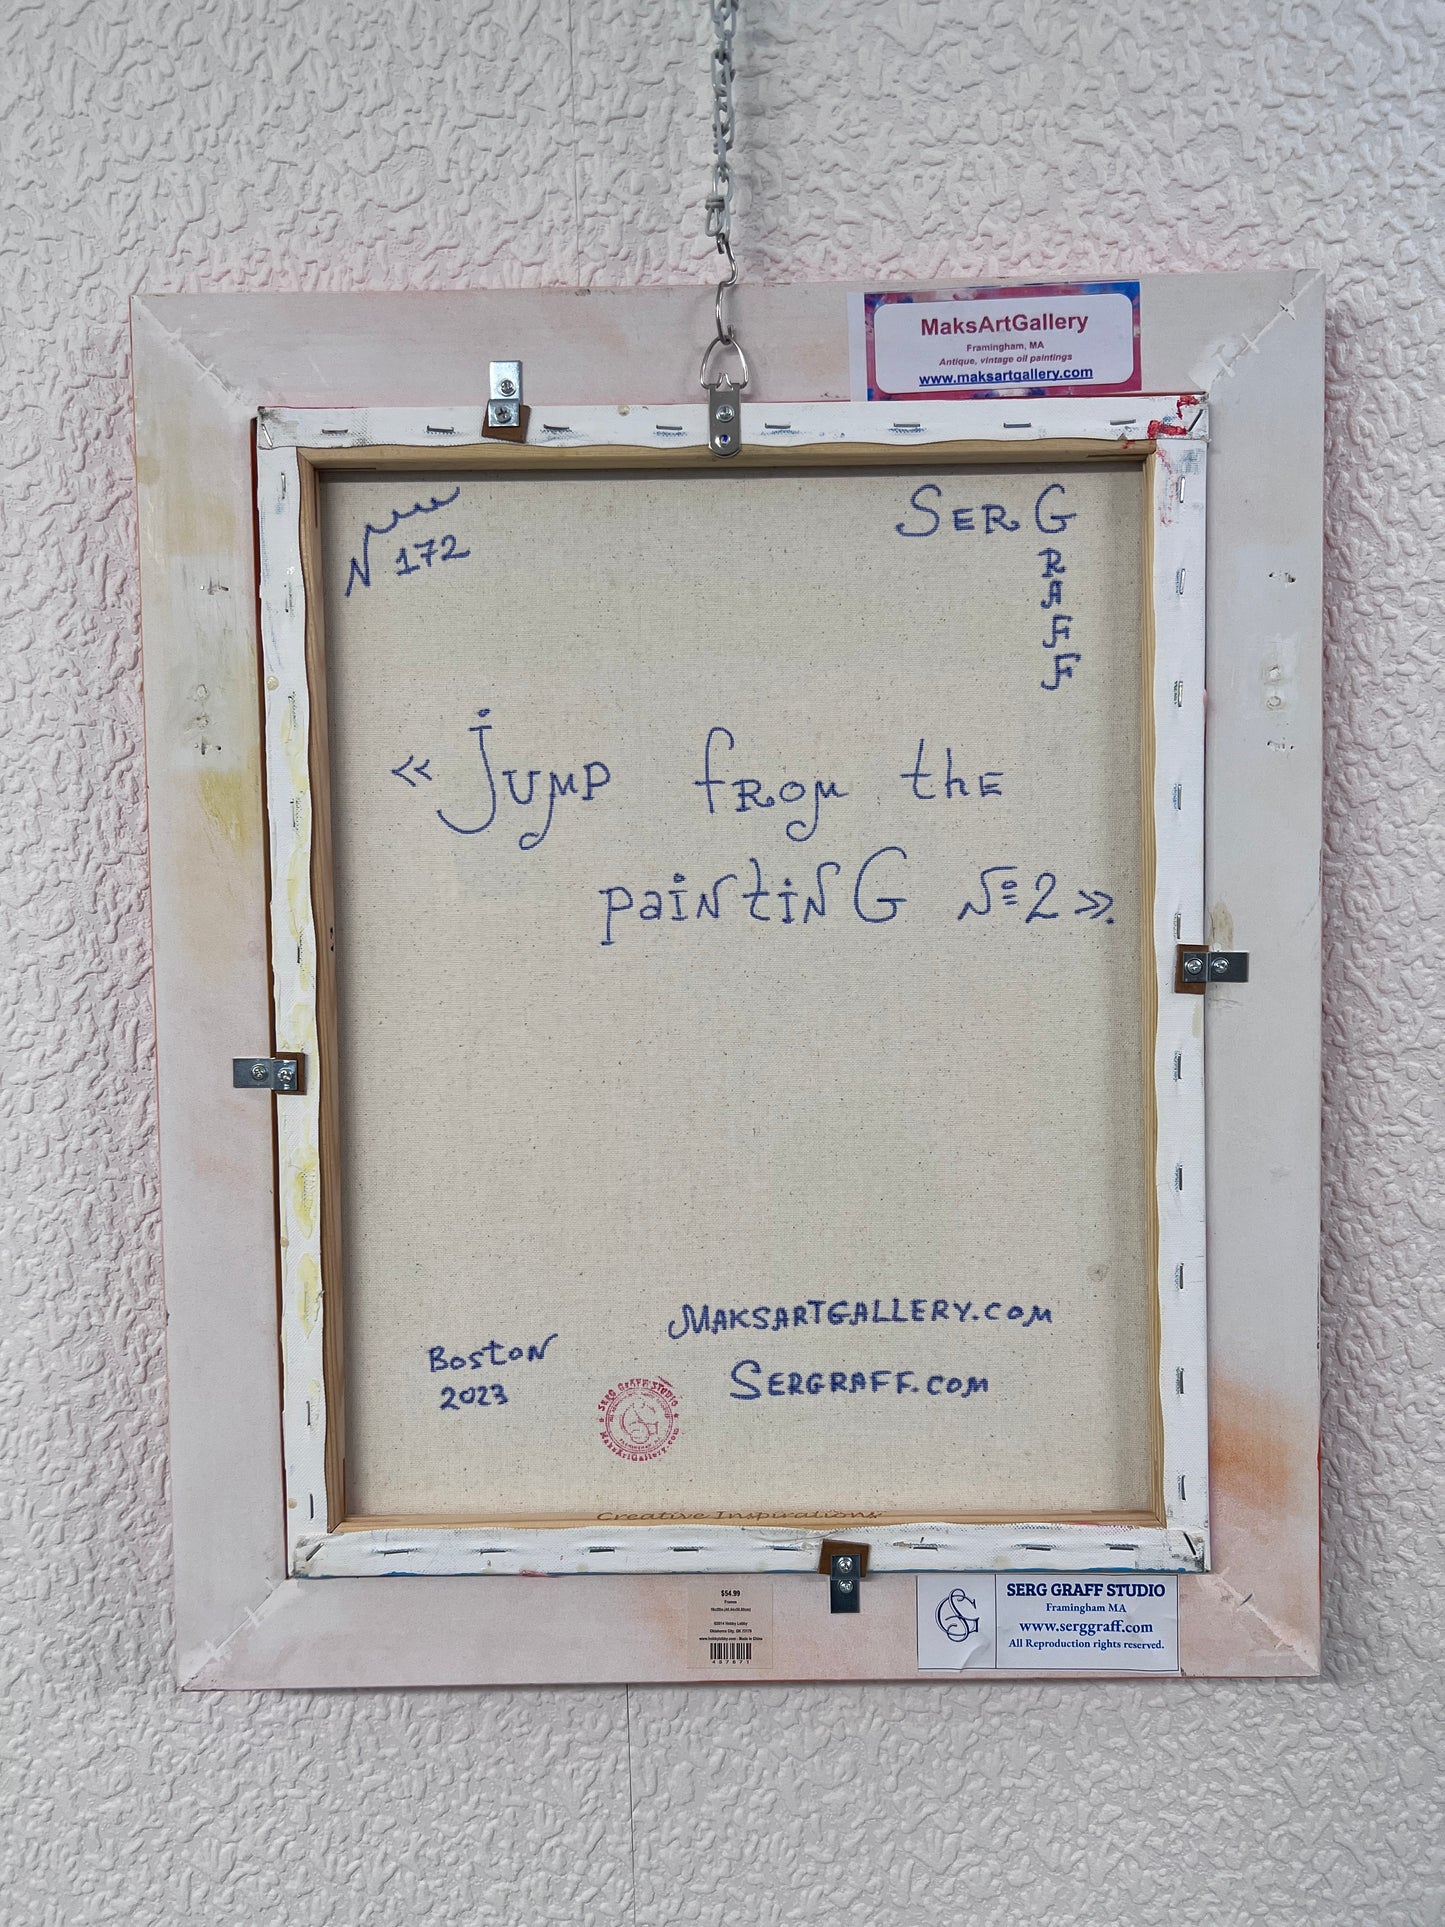 MaksArtGallery
Framingham, MA
Antique, vintage oil paintings
www.maksartgallery.com
N 172
SER G
R
A
F
F
« Jump from the
painting №2 ».
MAKSARTGALLERY.COM
SERGRAFF.COM
Boston
2023
SERG GRAFF STUDIO
FRAMINGHAM MA
MaksArtGallery.com
Creative Inspirations
$54.99
Frames
©2014 Hobby Lobby
Oklahoma City, OK 73179
www.hobbylobby.com · Made in China
457671
SG
SERG GRAFF STUDIO
Framingham MA
www.serggraff.com
All Reproduction rights reserved.